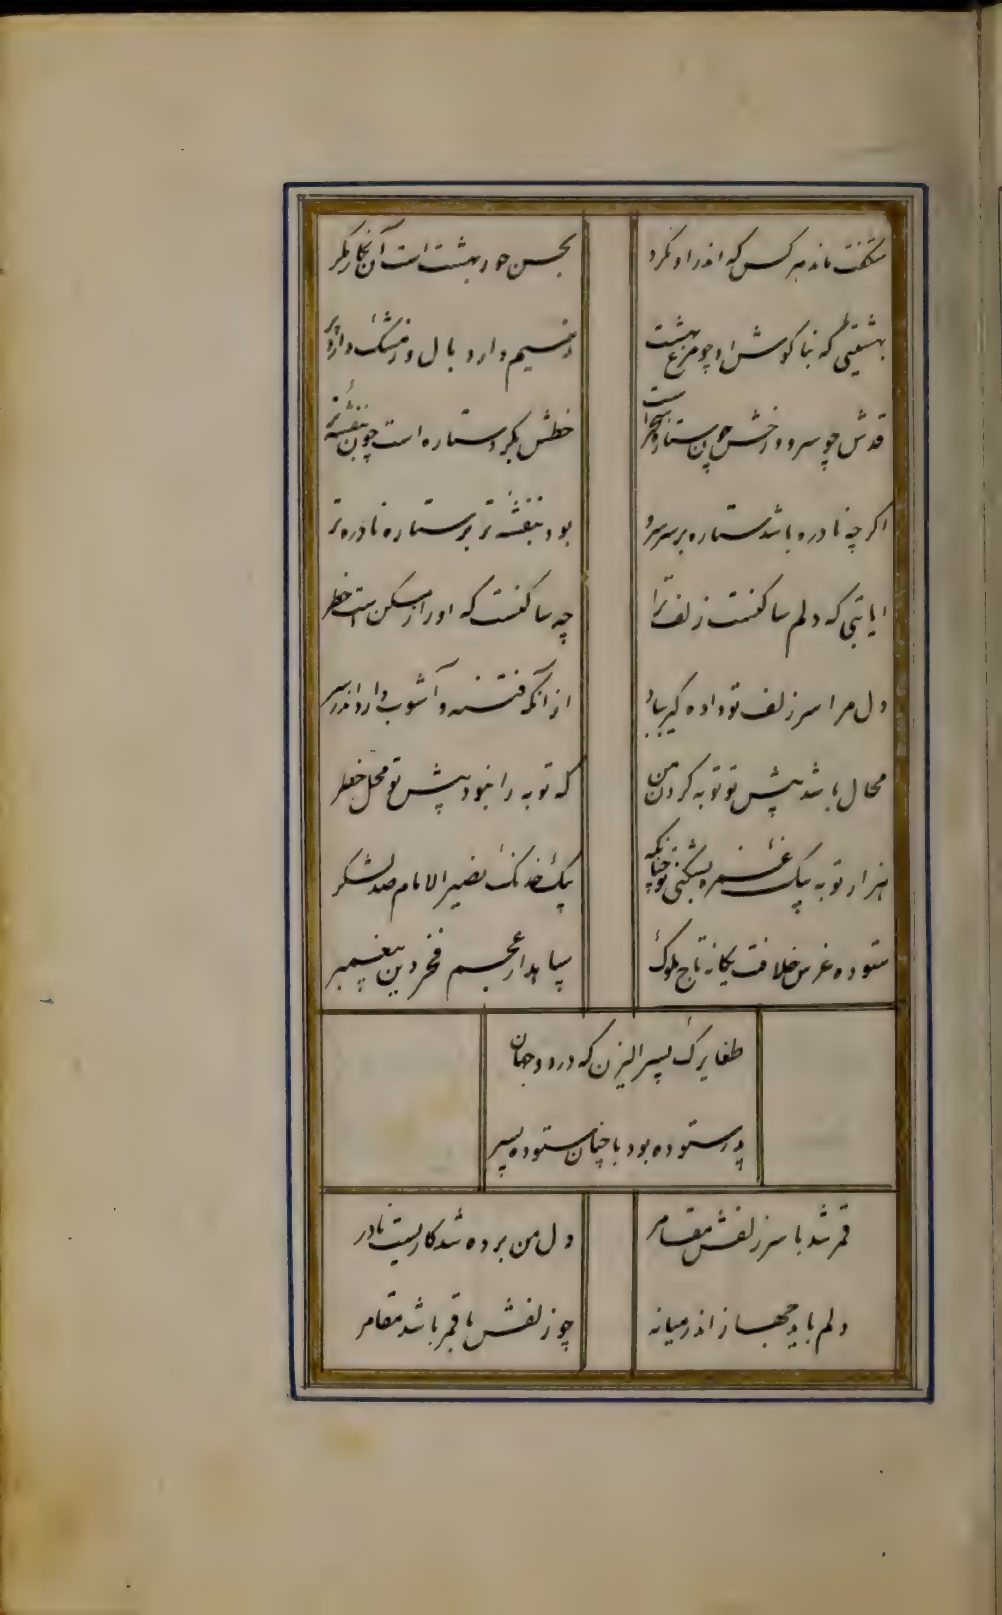 شکفت ماند هر کس که اندر او نکرد بحسن حور بهشت است آن نکار مکر
بهشتیی که بنا کوش او چو مرغ بهشت ز سیم دارد بال و ز مشک دارد پر
قدش چو سرو و رخش چون ستاره سحر است خطش بکرد ستاره است چون بنفشه تر
اکر چه نادره باشد ستاره بر سر سرو بود بنفشه تر بر ستاره نادره تر
ایا بتی که دلم ساکنست زلف ترا چه ساکنست که او را ز مسکن است خطر
دل مرا سر زلف تو داده کیر بباد از آنکه فتنه و آشوب دارد اندر سر
محال باشد پیش تو توبه کردن من که توبه را نبود پیش تو محل خطر
هزار توبه بیک غمزه بشکنی تو چنانکه بیک خدنک نصیر الامام صد لشکر
ستوده غرس خلافت یکانه تاج ملوک سپاهدار عجم فخر دین پیغمبر
طغایرک پسر الیزن که در دو جهان
پدر ستوده بود با چنان ستوده پسر
قمر شد با سر زلفش مقامر دل من برده شد کاریست نادر
دلم باید جهاز اندر میانه چو زلفش با قمر باشد مقامر